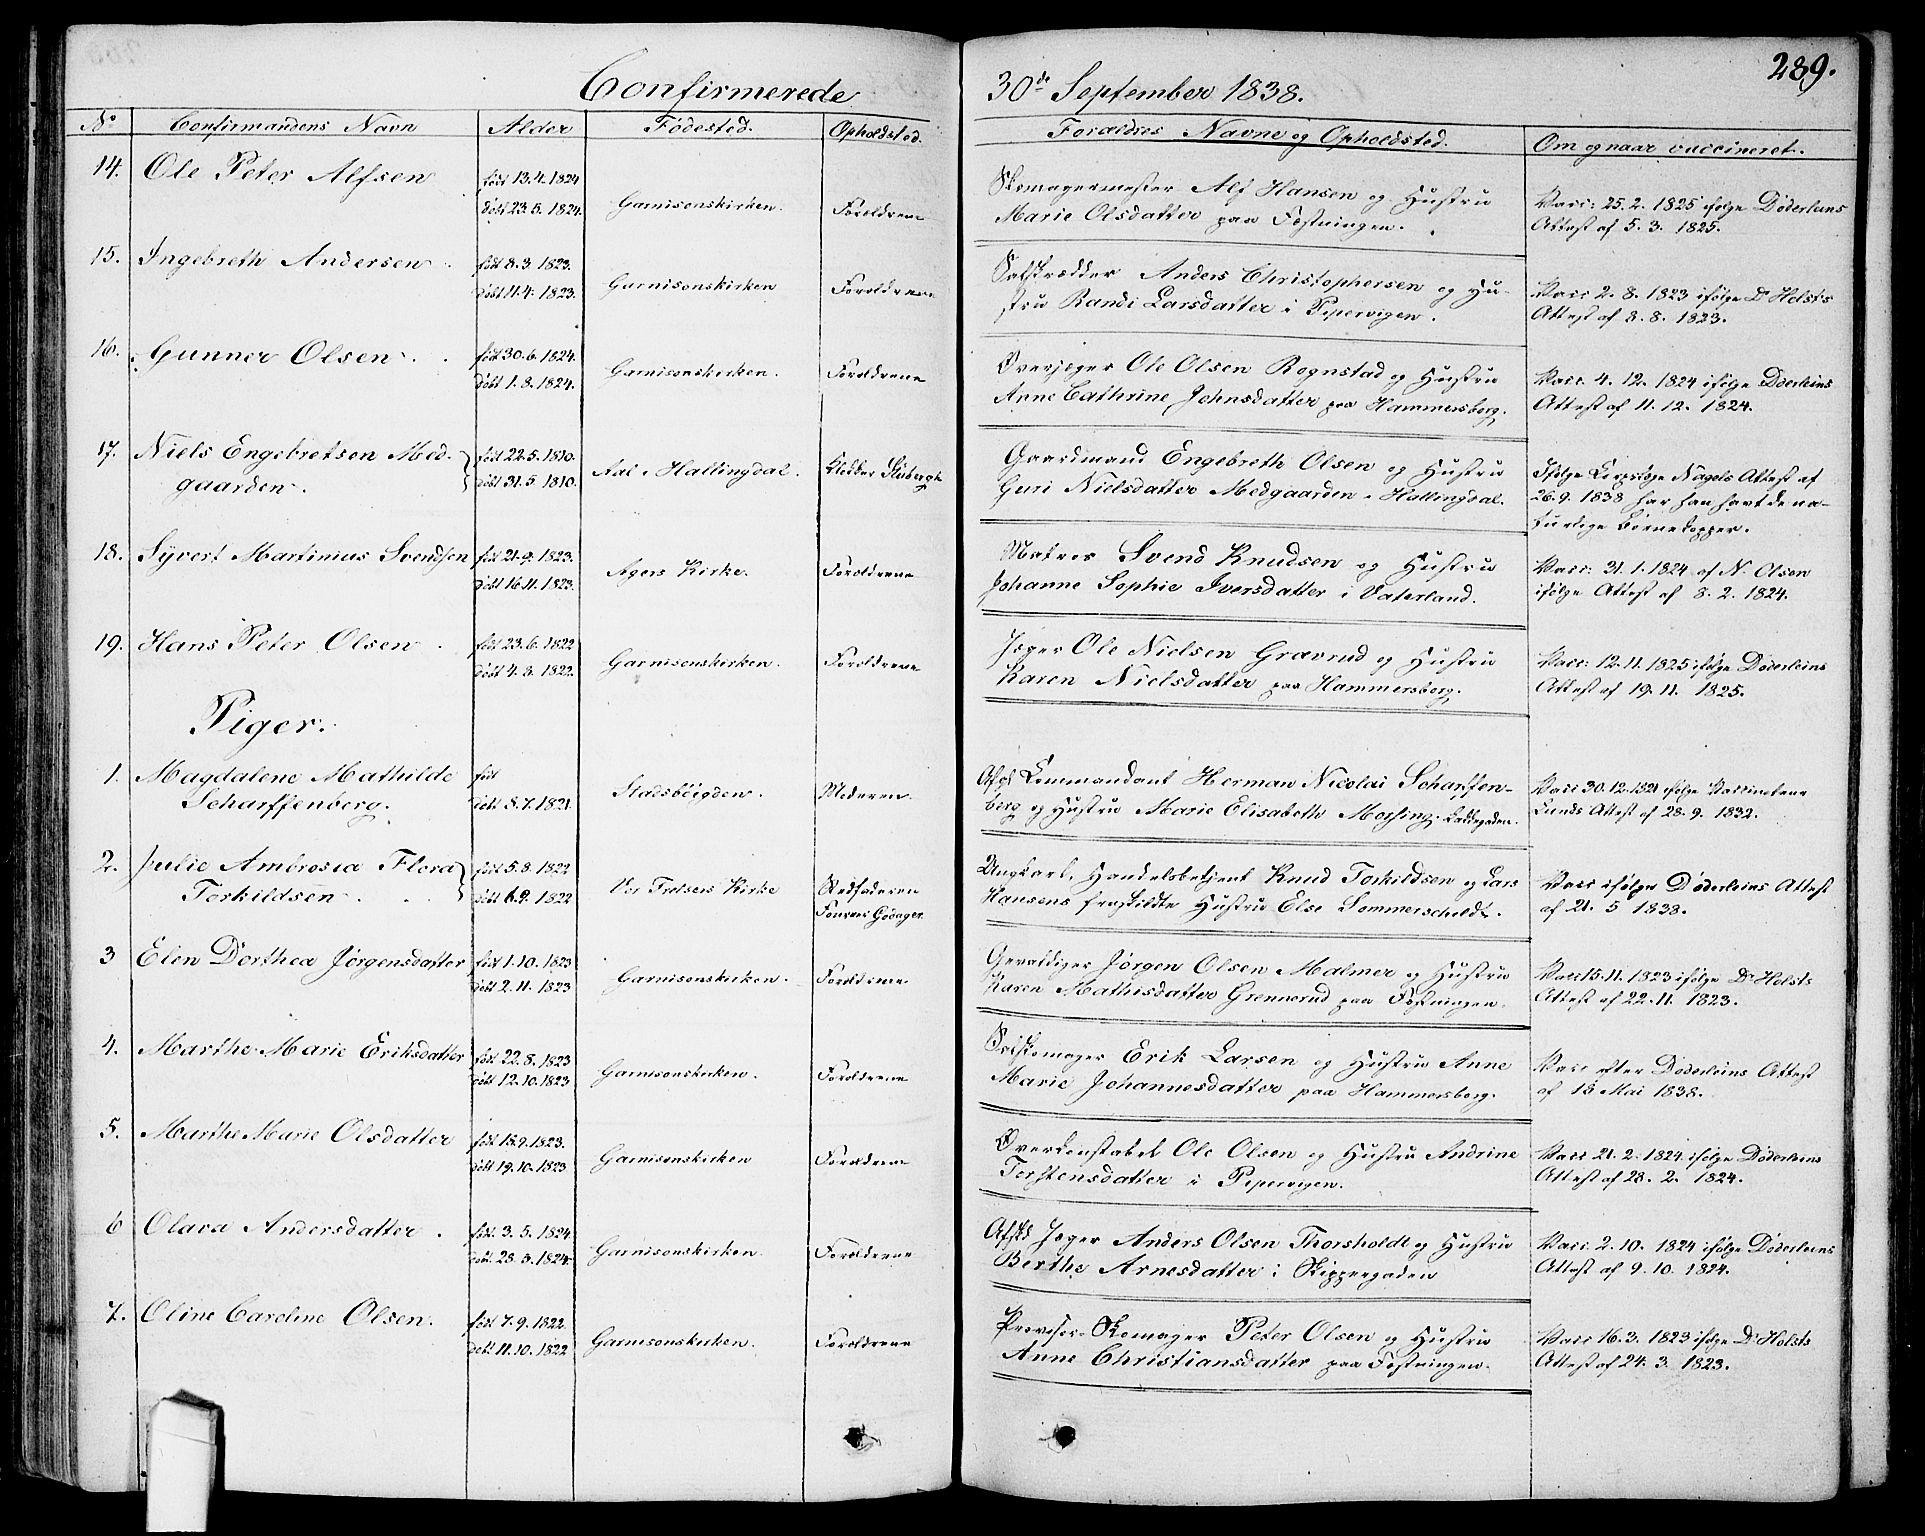 Confirmerede
30de September 1838.
289.
No Confirmandens Navn Alder Fødested. Opholdsted.
Forældres Navne og Opholdsted. Om og naar vaccineret.
14. Ole Peter Alfsen født 13.4.1824
døbt 23.5.1824. Garnisonskirken. Forældrene
Skomagermester Alf Hansen og Hustru
Marie Olsdatter paa Fæstningen.
Vacc: 25.2.1825 ifølge Døderleins
Attest af 5.3.1825.
15. Ingebreth Andersen født 8.3.1823.
døbt 11.4.1823. Garnisonskirken Forældrene
Anders Christophersen og Hu-
stru Randi Larsdatter i Pipervigen.
Vacc 2.8.1823 ifølge Dr Holsts
Attest af 8.8.1823.
16. Gunner Olsen født 30.6.1824.
døbt 1.8.1824. Garnisonskirken. Forældrene
Overjæger Ole Olsen Rognstad og Hustru
Anne Cathrine Johnsdatter paa Hammersborg.
Vacc. 4.12.1824 ifølge Døderleins
Attest af 11.12.1824.
17. Niels Engebretsen Med-
gaarden. født 22.5.1810.
døbt 31.5.1810. Aal i Hallingdal.
Gaardmand Engebreth Olsen og Hustru
Guri Nielsdatter Medgaarden i Hallingdal.
Ifølge Corpslæge Nagels Attest af
26.9.1838 har han havt de na-
turlige Børnekopper.
18. Syvert Martinius Svendsen født 21.9.1823.
døbt 16.11.1823. Agers Kirke. Forældrene
Matros Svend Knudsen og Hustru
Johanne Sophie Iversdatter i Vaterland.
Vacc: 31.1.1824 af N. Olsen
ifølge Attest af 8.2.1824.
19. Hans Peter Olsen født 23.6.1822
døbt 4.8.1822. Garnisonskirken. Forældrene
Jæger Ole Nielsen Gravrud og Hustru
Karen Nielsdatter paa Hammersborg.
Vacc: 12.11.1825 ifølge Døderleins
Attest af 19.11.1825.
Piger.
1. Magdalene Mathilde
Scharffenberg. født
døbt 8.7.1821. Stadsbøigden. Moderen.
Afgl Commandant Herman Nicolai Scharffen-
berg og Hustru Marie Elisabeth Morsing.
Vacc 30.12.1821 ifølge
Lunds Attest af 28.9.1832.
2. Julie Ambrosia Flora
Torkildsen. født 5.8.1822
døbt 6.9.1822 Vor Frelsers Kirke Stedfaderen
Ungkarl, Handelsbetjent Knud Torkildsen og Lars
Hansens fraskildte Hustru Else Sommerscheldt.
Vacc ifølge Døderleins Attest
af 21.5 1838.
3 Elen Dorthea Jørgensdatter født 1.10.1823
døbt 2.11.1823 Garnisonskirken. Forældrene
Gevaldiger Jørgen Olsen Malmer og Hustru
Karen Mathisdatter Grennerud paa Fæstningen.
Vacc 15.11.1823 ifølge Dr Holsts
Attest af 22.11.1823.
4. Marthe Marie Eriksdatter født 22.8.1823
døbt 12.10.1823 Garnisonskirken. Forældrene
Erik Larsen og Hustru Anne
Marie Johannesdatter paa Hammersborg.
Vacc efter Døderleins Attest
af 18 Mai 1838.
5. Marthe Marie Olsdatter født 18.9.1823.
døbt 19.10.1823 Garnisonskirken Forældrene
Overkonstabel Ole Olsen og Hustru Andrine
Torstensdatter i Pipervigen.
Vacc 21.2.1824 ifølge Døderleins
Attest af 28.2.1824.
6 Olava Andersdatter. født. 3.5.1824
døbt. 28.3.1824. Garnisonskirken. Forældrene
Afskd Jæger Anders Olsen Thorsholdt og Hustru
Berthe Arnesdatter i Skippergaden
Vacc. 2.10.1824 ifølge Døderleins
Attest af 9.10.1824.
7. Oline Caroline Olsen. født 7.9.1822.
døbt 11.10.1822 Garnisonskirken. Forældrene
Skomager Peter Olsen og Hustru
Anne Christiansdatter paa Fæstningen.
Vacc 16.3.1823 ifølge Dr Holsts
Attest af 24.3.1823.